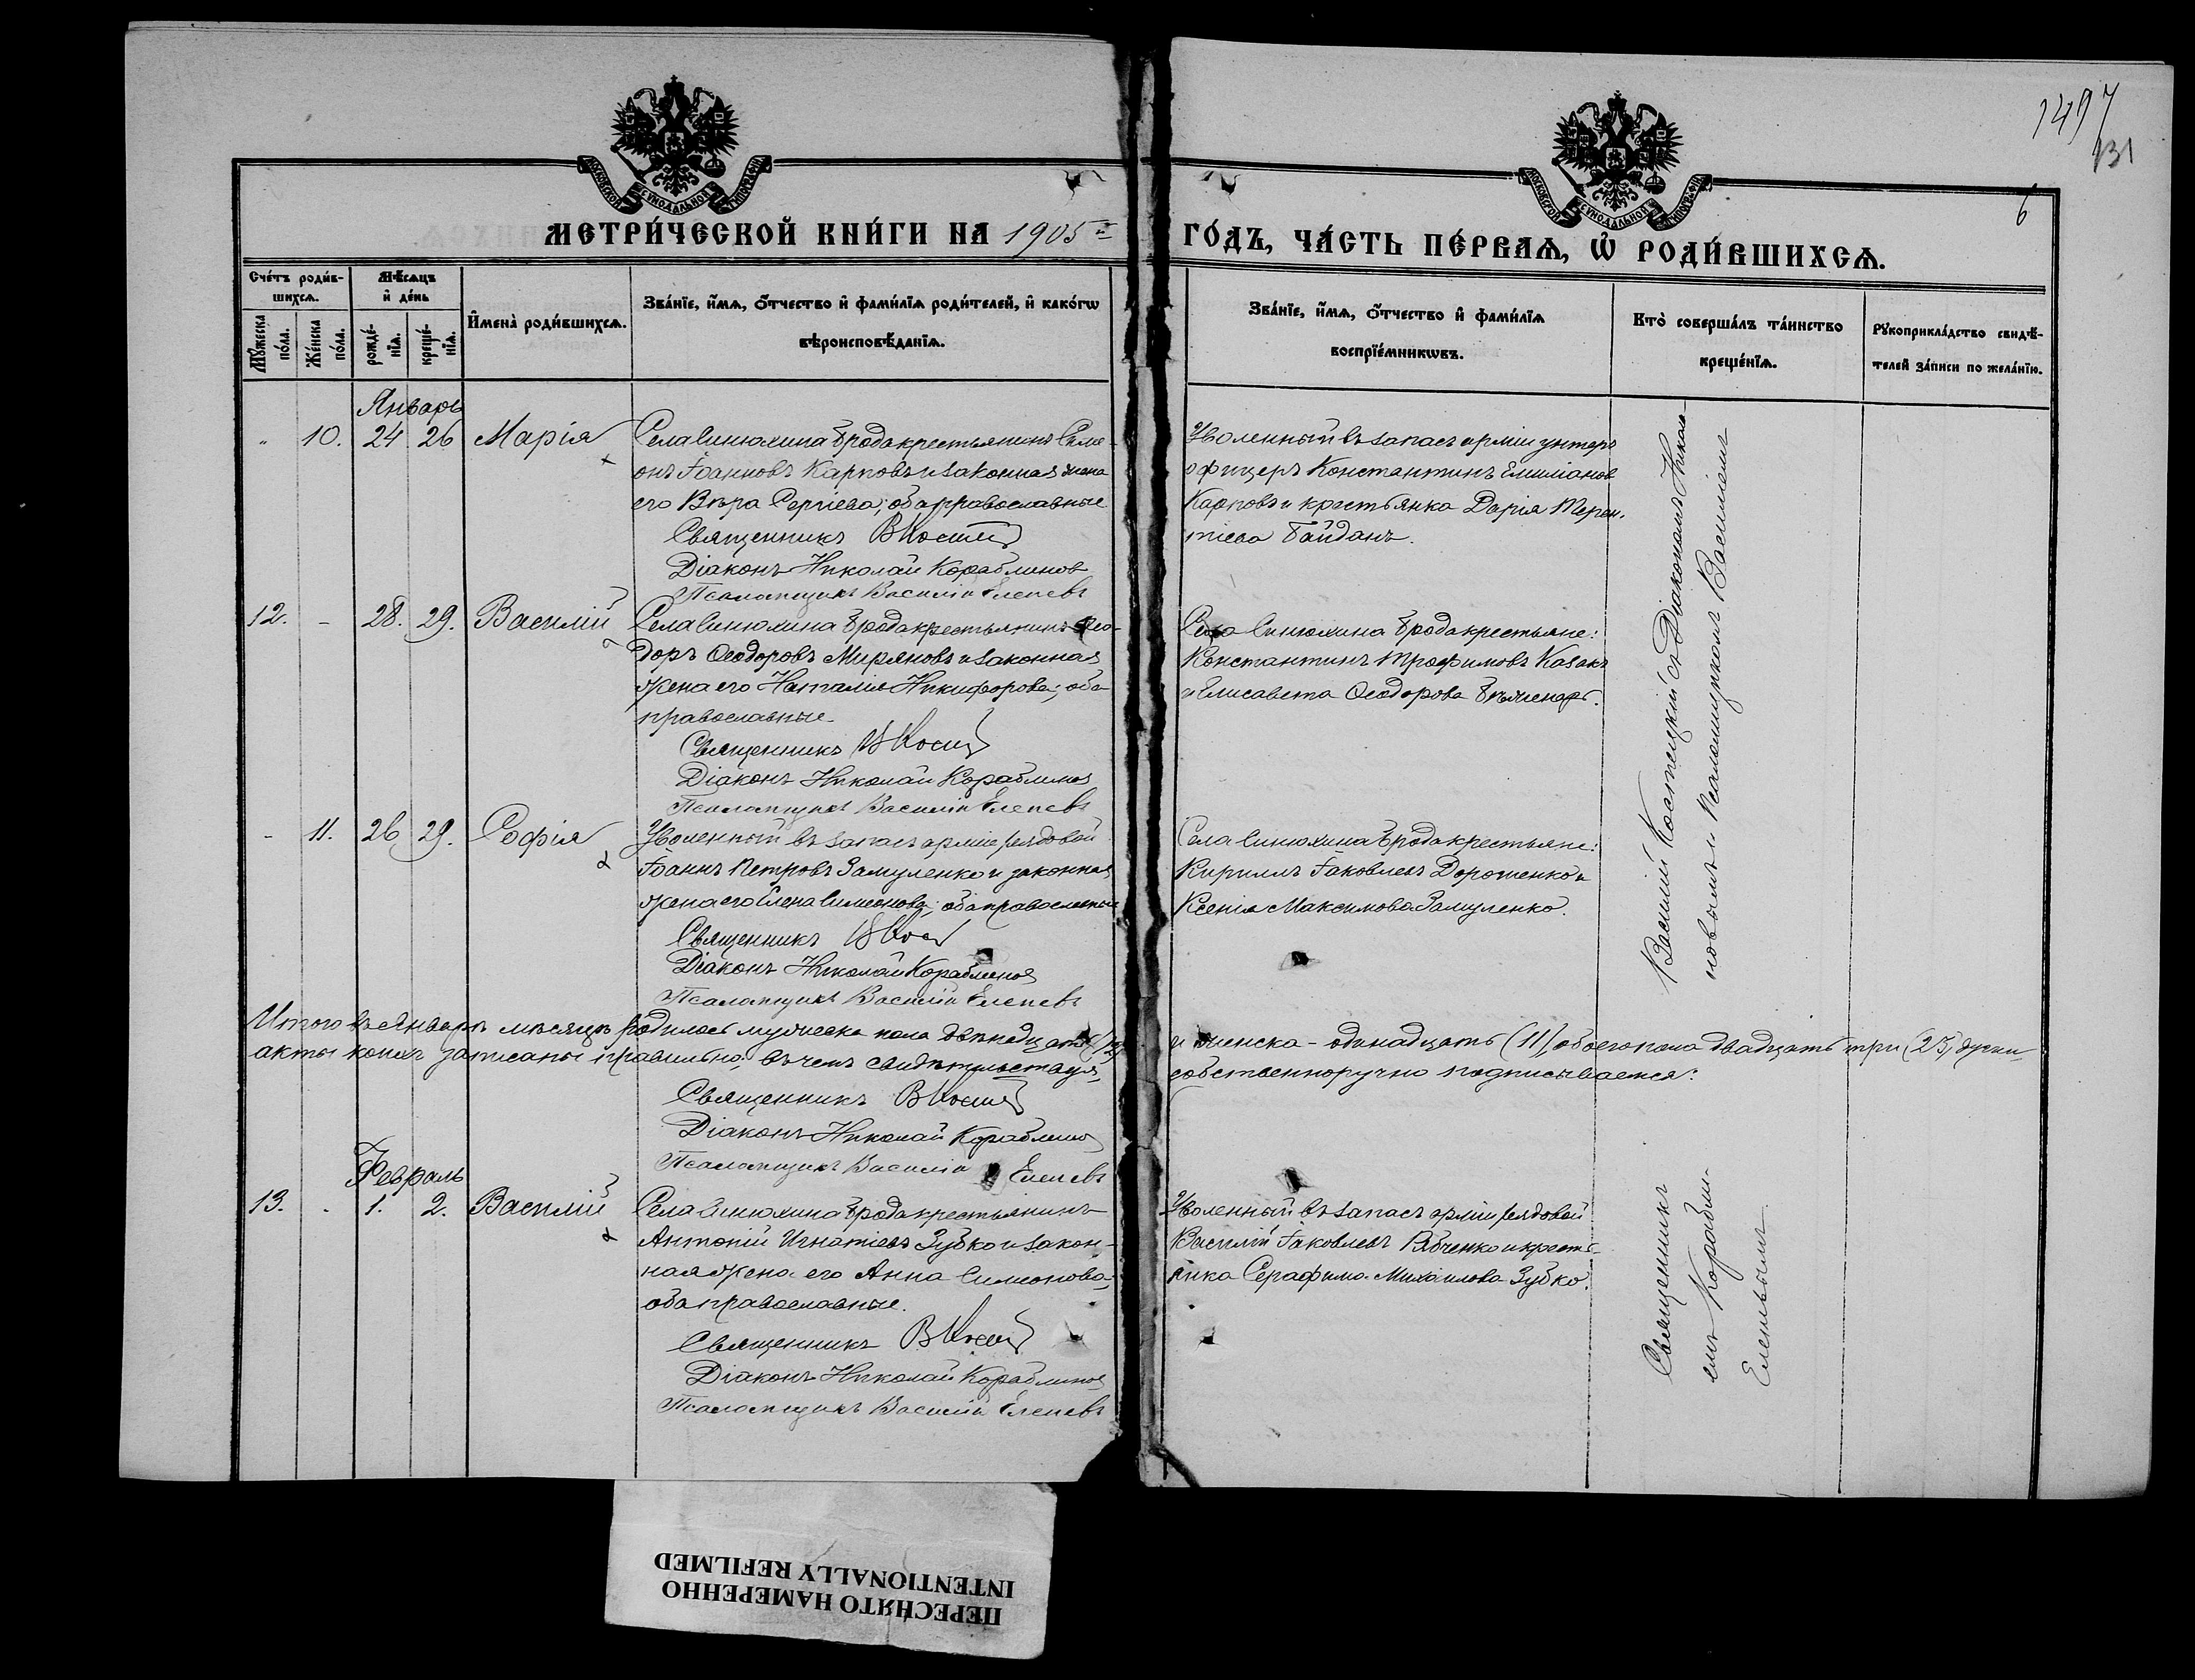 1497
131
6
МОСКОВСКОЙ СѴНОДАЛЬНОЙ ТИПОГРАФІИ
МОСКОВСКОЙ СѴНОДАЛЬНОЙ ТИПОГРАФІИ
МЕТРИ́ЧЕСКОЙ КНИ́ГИ НА 1905й ГО́ДЪ, ЧА́СТЬ ПЕ́РВАѦ, Ѡ҆ РОДИ́ВШИХСѦ.
Сче́тъ роди́вшихсѧ.
Мꙋ́жеска по́ла.
Же́нска по́ла.
Мѣ́сѧцъ и҆ де́нь
рожде́нїѧ.
креще́нїѧ.
И҆мена̀ роди́вшихсѧ.
Зва́нїе, и҆́мѧ, ѻ҆́тчество и҆ фами́лїѧ роди́телей, и҆ како́гѡ
вѣроисповѣ́данїѧ.
Зва́нїе, и҆́мѧ, ѻ҆́тчество и҆ фами́лїѧ
воспрїе́мникѡвъ.
Кто̀ соверша́лъ та́инство
креще́нїѧ.
Рꙋкоприкла́дство свидѣ́-
телей за́писи по жела́нїю.
Январь
" 10. 24 26 Марія
Села Синюхина Брода крестьянинъ Симе-
онъ Іоанновъ Карповъ и законная жена
его Вѣра Сергіева; оба православные
Священникъ В Кост
Діаконъ Николай Кораблинов
Псаломщикъ Василій Еленевъ
Уволенный въ запасъ арміи унтеръ
офицеръ Константинъ Емиліановъ
Карповъ и крестьянка Дарія Терен-
тіева Байданъ.
12. - 28. 29. Василій
Села Синюхина Брода крестьянинъ Ѳео-
доръ Ѳеодоровъ Миряновъ и законная
жена его Наталія Никифорова; оба
православные.
Священникъ В Кост
Діаконъ Николай Кораблинов
Псаломщикъ Василій Еленевъ
Села Синюхина Брода крестьяне:
Константинъ Трофимовъ Казакъ
и Елисавета Ѳеодорова
- 11. 26 29. Софія
Уволенный въ запасъ арміи рядовой
Іоаннъ Петровъ Замуленко и законная
жена его Елена Симеонова; оба православные
Священникъ В Кост
Діаконъ Николай Кораблинов
Псаломщикъ Василій Еленевъ
Села Синюхина Брода крестьяне:
Кириллъ Іаковлевъ Дорошенко и
Ксенія Максимова Замуленко.
Василій Костецкій съ Діакономъ Николаемъ
новымъ и Псаломщикомъ Василіемъ
Итого въ Январѣ мѣсяцѣ родилось мужеска пола двѣнадцать (12) и женска - одинадцать (11), обоего пола двадцать три (23) души
акты коихъ записаны правильно; въ чемъ свидѣтельствуя, собственноручно подписываемся:
Священникъ В Кост
Діаконъ Николай Кораблинов
Псаломщикъ Василій Еленевъ
Февраль
13. . 1. 2. Василій
Села Синюхина Брода крестьянинъ
Антоній Игнатіевъ Зубко и закон-
ная жена его Анна Симеонова,
оба православные.
Священникъ В Кост
Діаконъ Николай Кораблинов
Псаломщикъ Василій Еленевъ
Уволенный въ запасъ арміи рядовой
Василій Іаковлевъ Рябченко и кресть-
янка Серафима Михаилова Зубко.
Священникъ
емъ Корабли-
Еленевымъ.
ПЕРЕСНЯТО НАМЕРЕННО
INTENTIONALLY REFILMED